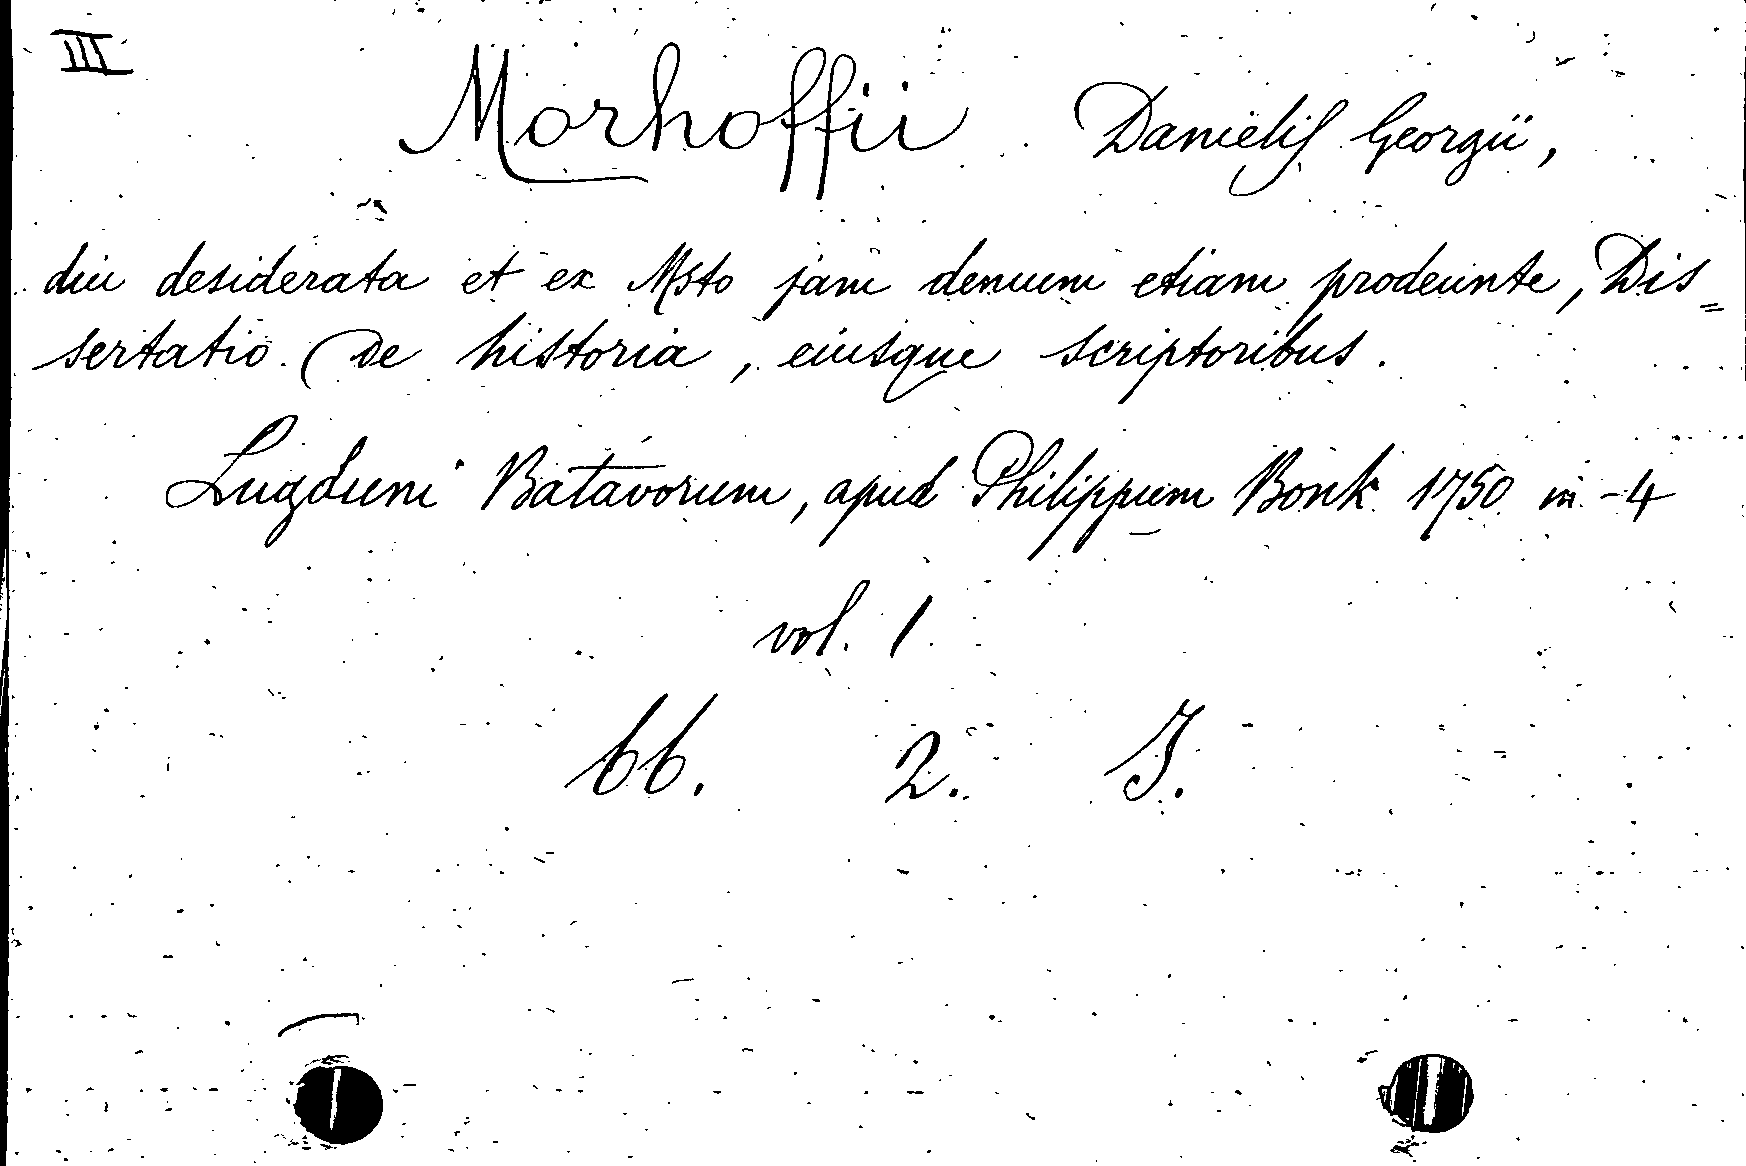 III
Morhoffii Danielis Georgii,
diu desiderata et ex Msto jam denuem etiam prodeunte, Dis=
sertatio De historia, eiusque scriptoribus.
Lugduni Batavorum, apud Philippum Bonk 1750 in-4
vol. 1
66. 2. J.